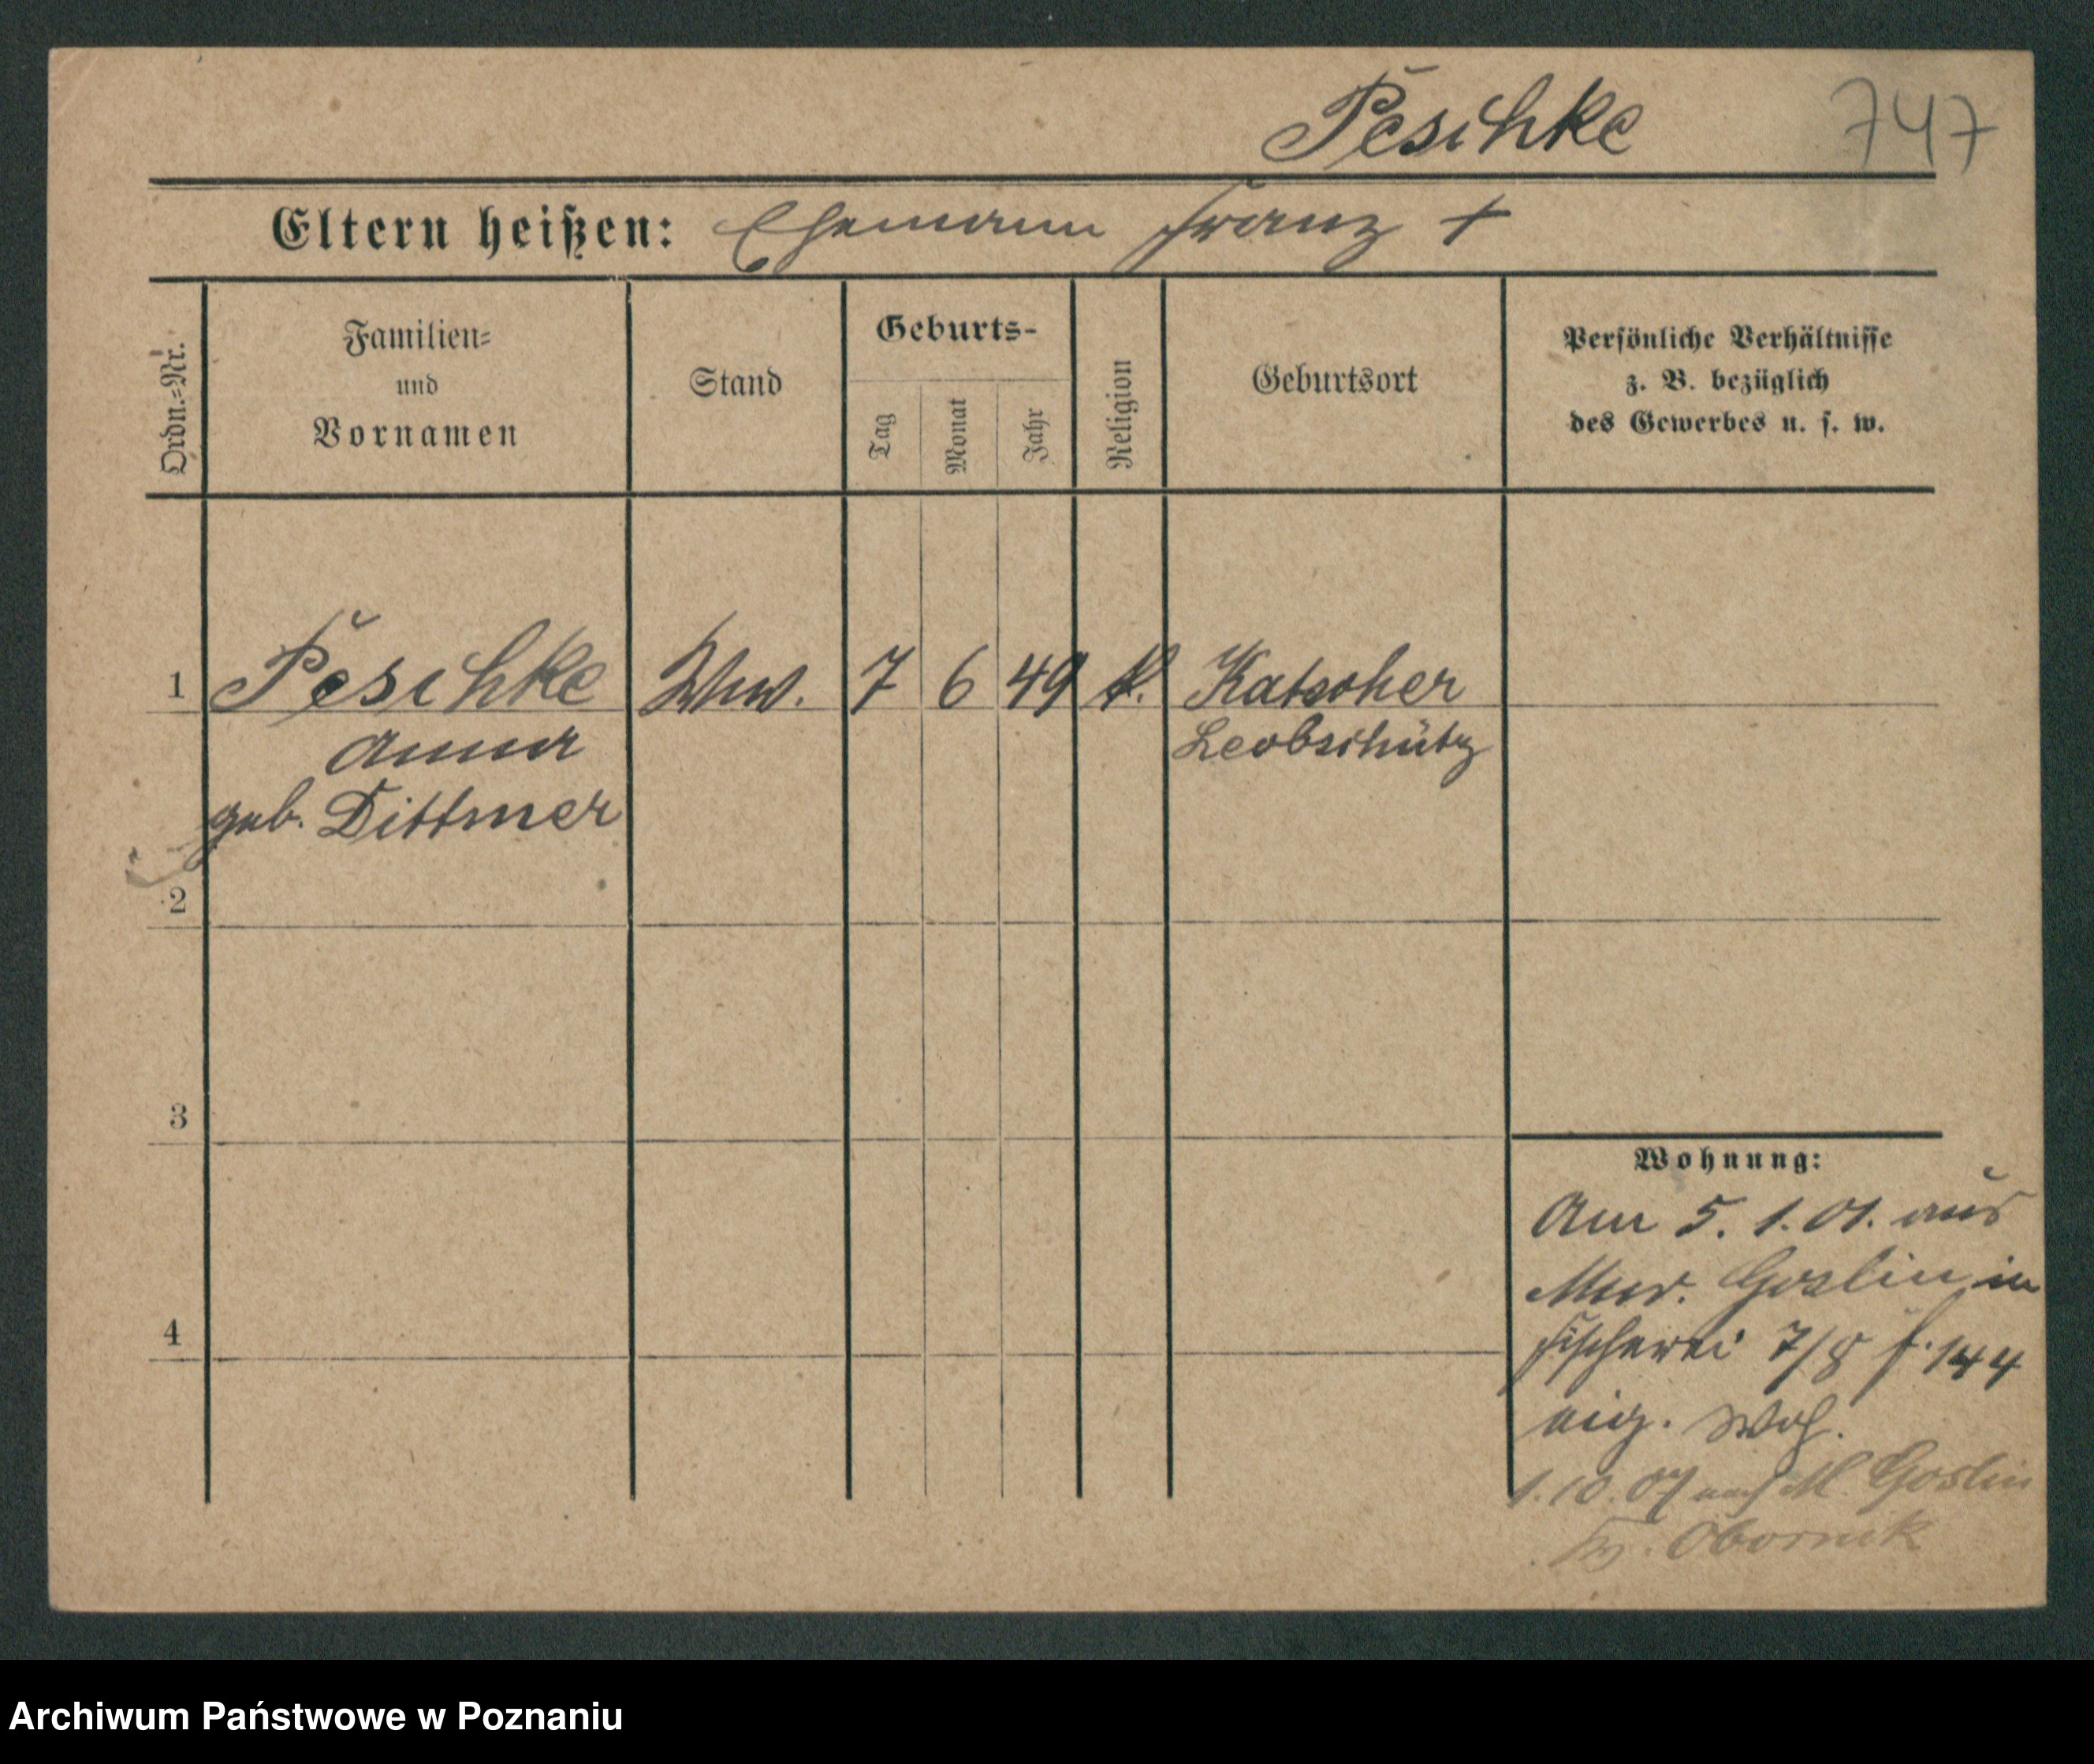 Peschke 747
Eltern heißen: Ehemann Franz +
Ordn.=Nr.
Familien=
und
Vornamen
Stand
Geburts-
Tag
Monat
Jahr
Religion
Geburtsort
Persönliche Verhältnisse
z. B. bezüglich
des Gewerbes u. s. w.
1 Peschke Ww. 7 6 49 k. Katscher
Anna Leobschütz
geb. Dittmer
2
3
4
Wohnung:
Am 5. 1. 01. aus
Mur. Goslin in
Fischerei 7/8 f. 144
eig. Woh.
1. 10. 07 nach M. Goslin
Kr. Obornik
Archiwum Państwowe w Poznaniu